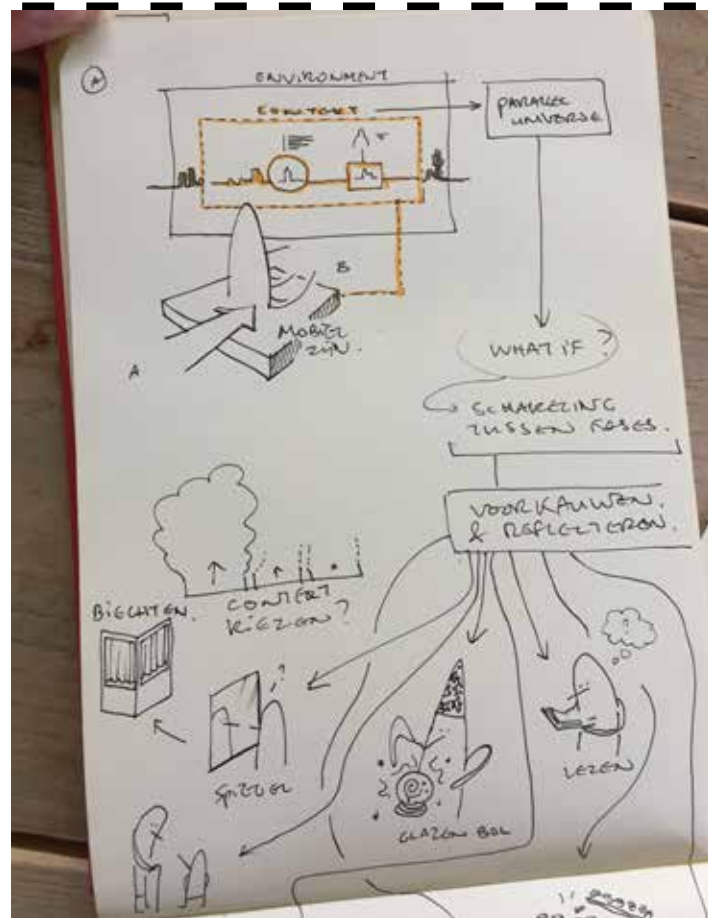 A
ENVIRONMENT
CONTEXT
PARALLEL
UNIVERSE
B
MOBIEL
ZIJN.
A
WHAT IF?
SCHAKELING
TUSSEN FASES.
VOORKAUWEN.
& REFLECTEREN.
CONTEXT
KIEZEN?
BIECHTEN.
?
?
SPIEGEL
GLAZEN BOL
LEZEN